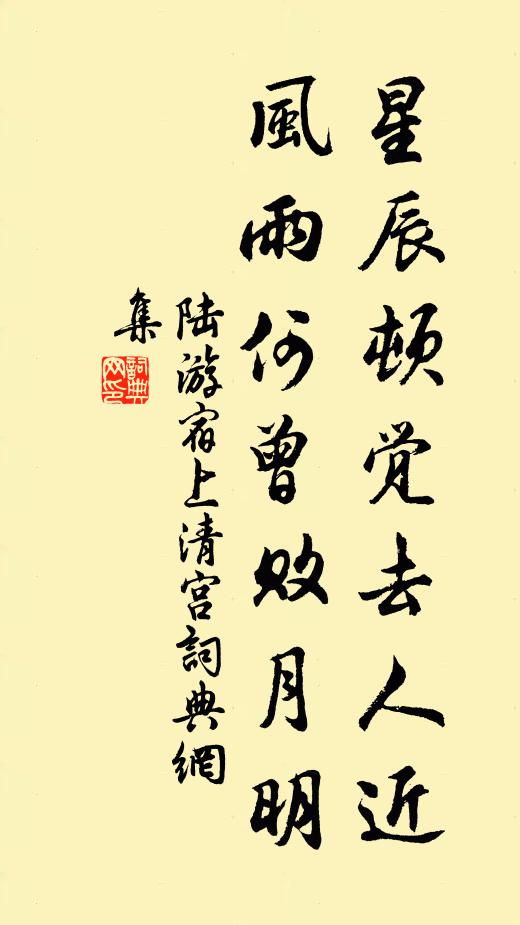 星辰頓觉去人近
風雨何曾败月明
陆游宿上清宫詞典網
集
詞典
网印